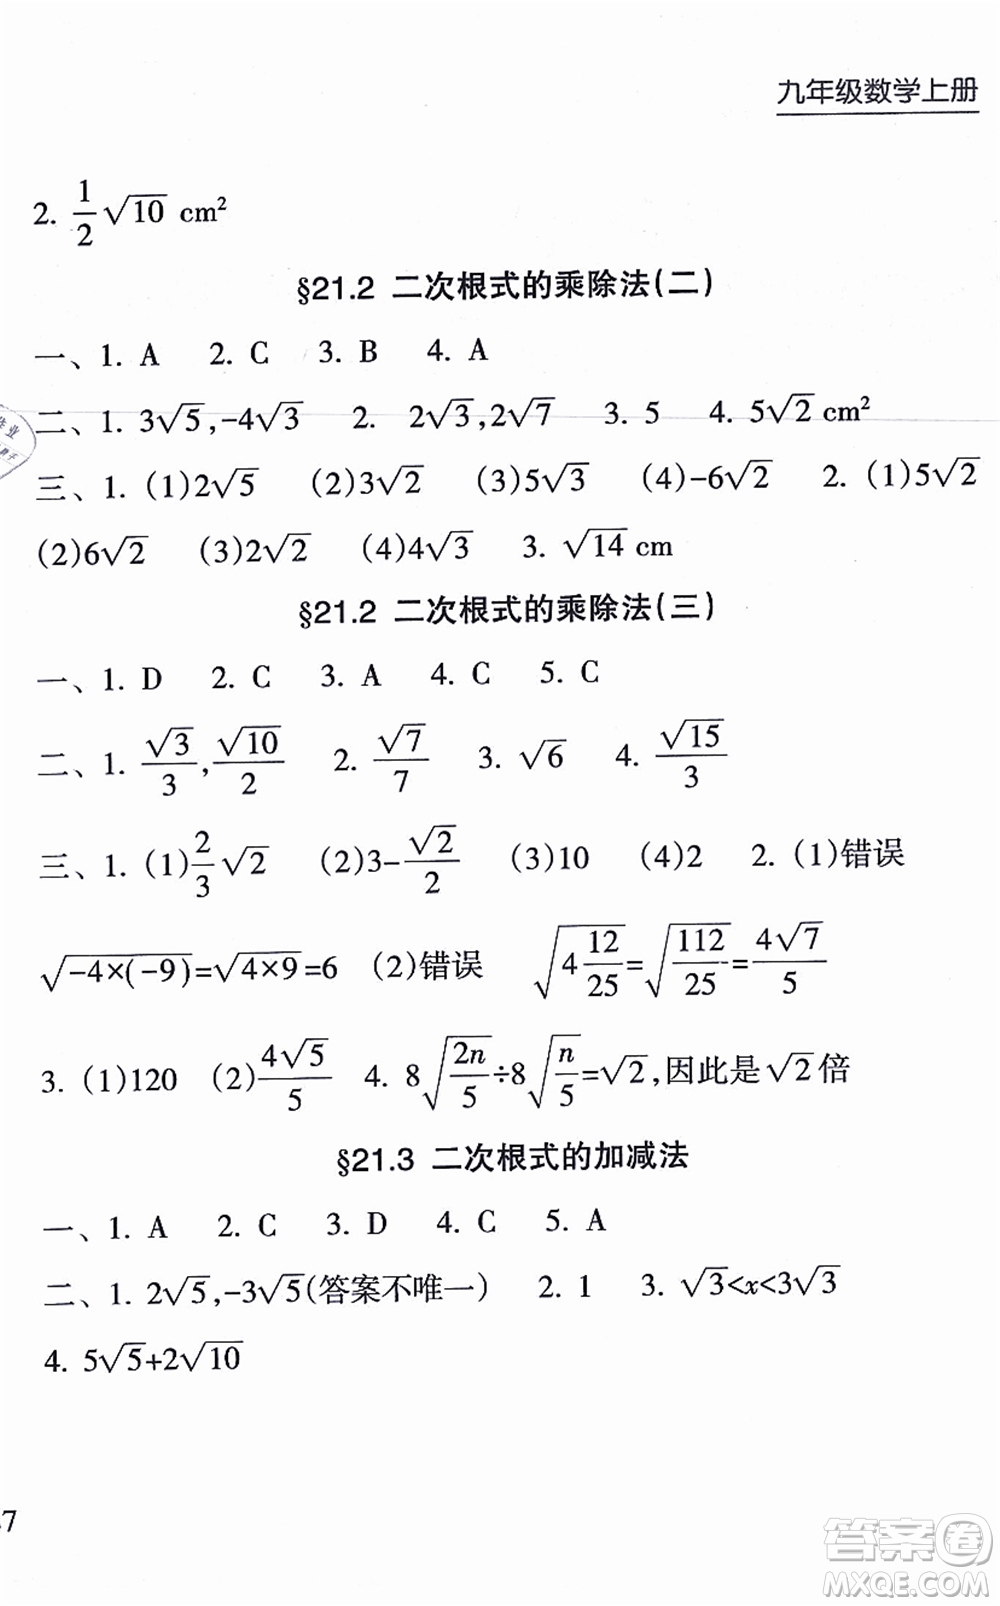 九年级数学上册
2. \frac{1}{2}√10 cm²
§21.2 二次根式的乘除法(二)
一、1. A 2. C 3. B 4. A
二、1. 3√5,-4√3 2. 2√3,2√7 3. 5 4. 5√2 cm²
三、1. (1)2√5 (2)3√2 (3)5√3 (4)-6√2 2. (1)5√2
(2)6√2 (3)2√2 (4)4√3 3. √14 cm
§21.2 二次根式的乘除法(三)
一、1. D 2. C 3. A 4. C 5. C
二、1. \frac{√3}{3},\frac{√10}{2} 2. \frac{√7}{7} 3. √6 4. \frac{√15}{3}
三、1. (1)\frac{2}{3}√2 (2)3-\frac{√2}{2} (3)10 (4)2 2. (1)错误
\sqrt{-4×(-9)}=\sqrt{4×9}=6 (2)错误 \sqrt{4\frac{12}{25}}=\sqrt{\frac{112}{25}}=\frac{4√7}{5}
3. (1)120 (2)\frac{4√5}{5} 4. 8\sqrt{\frac{2n}{5}}÷8\sqrt{\frac{n}{5}}=√2,因此是√2倍
§21.3 二次根式的加减法
一、1. A 2. C 3. D 4. C 5. A
二、1. 2√5,-3√5(答案不唯一) 2. 1 3. √3<x<3√3
4. 5√5+2√10
7
答案卷
MXQE.COM